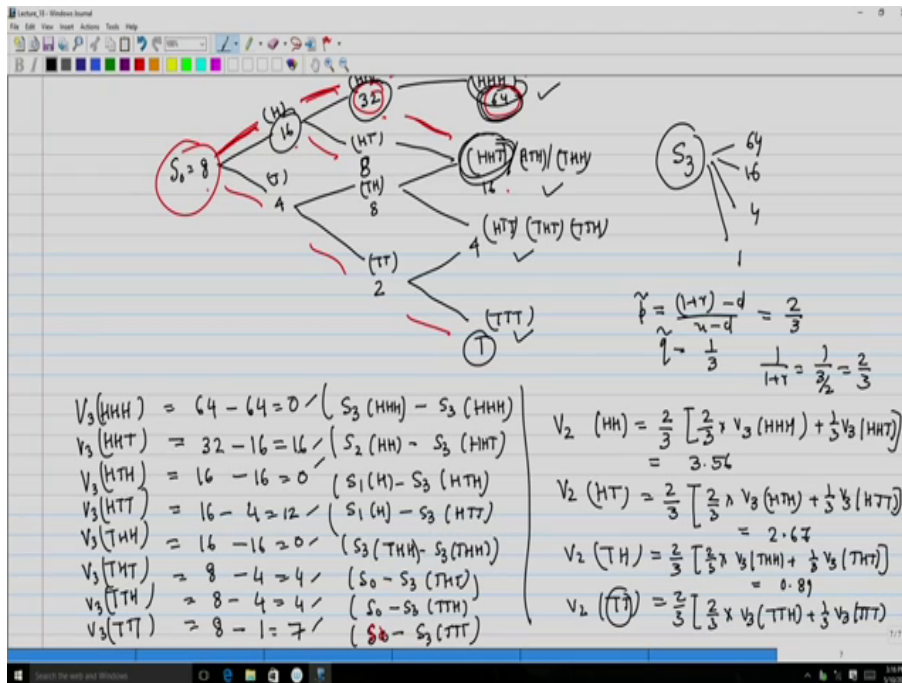 Lecture_18 - Windows Journal
File Edit View Insert Actions Tools Help
100%
B I
(HH)
(HHH)
32
64
(H)
16
(HT)
8
(HHT) / (HTH) / (THH)
16
S₀ = 8
(T)
4
(TH)
8
(HTT) (THT) (TTH)
4
(TT)
2
(TTT)
1
S₃
64
16
4
1
p̃ = (1+r) - d / u - d = 2/3
q̃ = 1/3
1/1+r = 1/3/2 = 2/3
V₃(HHH) = 64 - 64 = 0 / (S₃(HHH) - S₃(HHH)
V₃(HHT) = 32 - 16 = 16 / (S₂(HH) - S₃(HHT)
V₃(HTH) = 16 - 16 = 0 / (S₁(H) - S₃(HTH)
V₃(HTT) = 16 - 4 = 12 / (S₁(H) - S₃(HTT)
V₃(THH) = 16 - 16 = 0 / (S₃(THH) - S₃(THH)
V₃(THT) = 8 - 4 = 4 / (S₀ - S₃(THT)
V₃(TTH) = 8 - 4 = 4 / (S₀ - S₃(TTH)
V₃(TTT) = 8 - 1 = 7 / (S₀ - S₃(TTT)
V₂ (HH) = 2/3 [2/3 × V₃(HHH) + 1/3 V₃(HHT)]
= 3.56
V₂ (HT) = 2/3 [2/3 × V₃(HTH) + 1/3 V₃(HTT)]
= 2.67
V₂ (TH) = 2/3 [2/3 × V₃(THH) + 1/3 V₃(THT)]
= 0.89
V₂ (TT) = 2/3 [2/3 × V₃(TTH) + 1/3 V₃(TTT)
7/7
7
Search the web and Windows